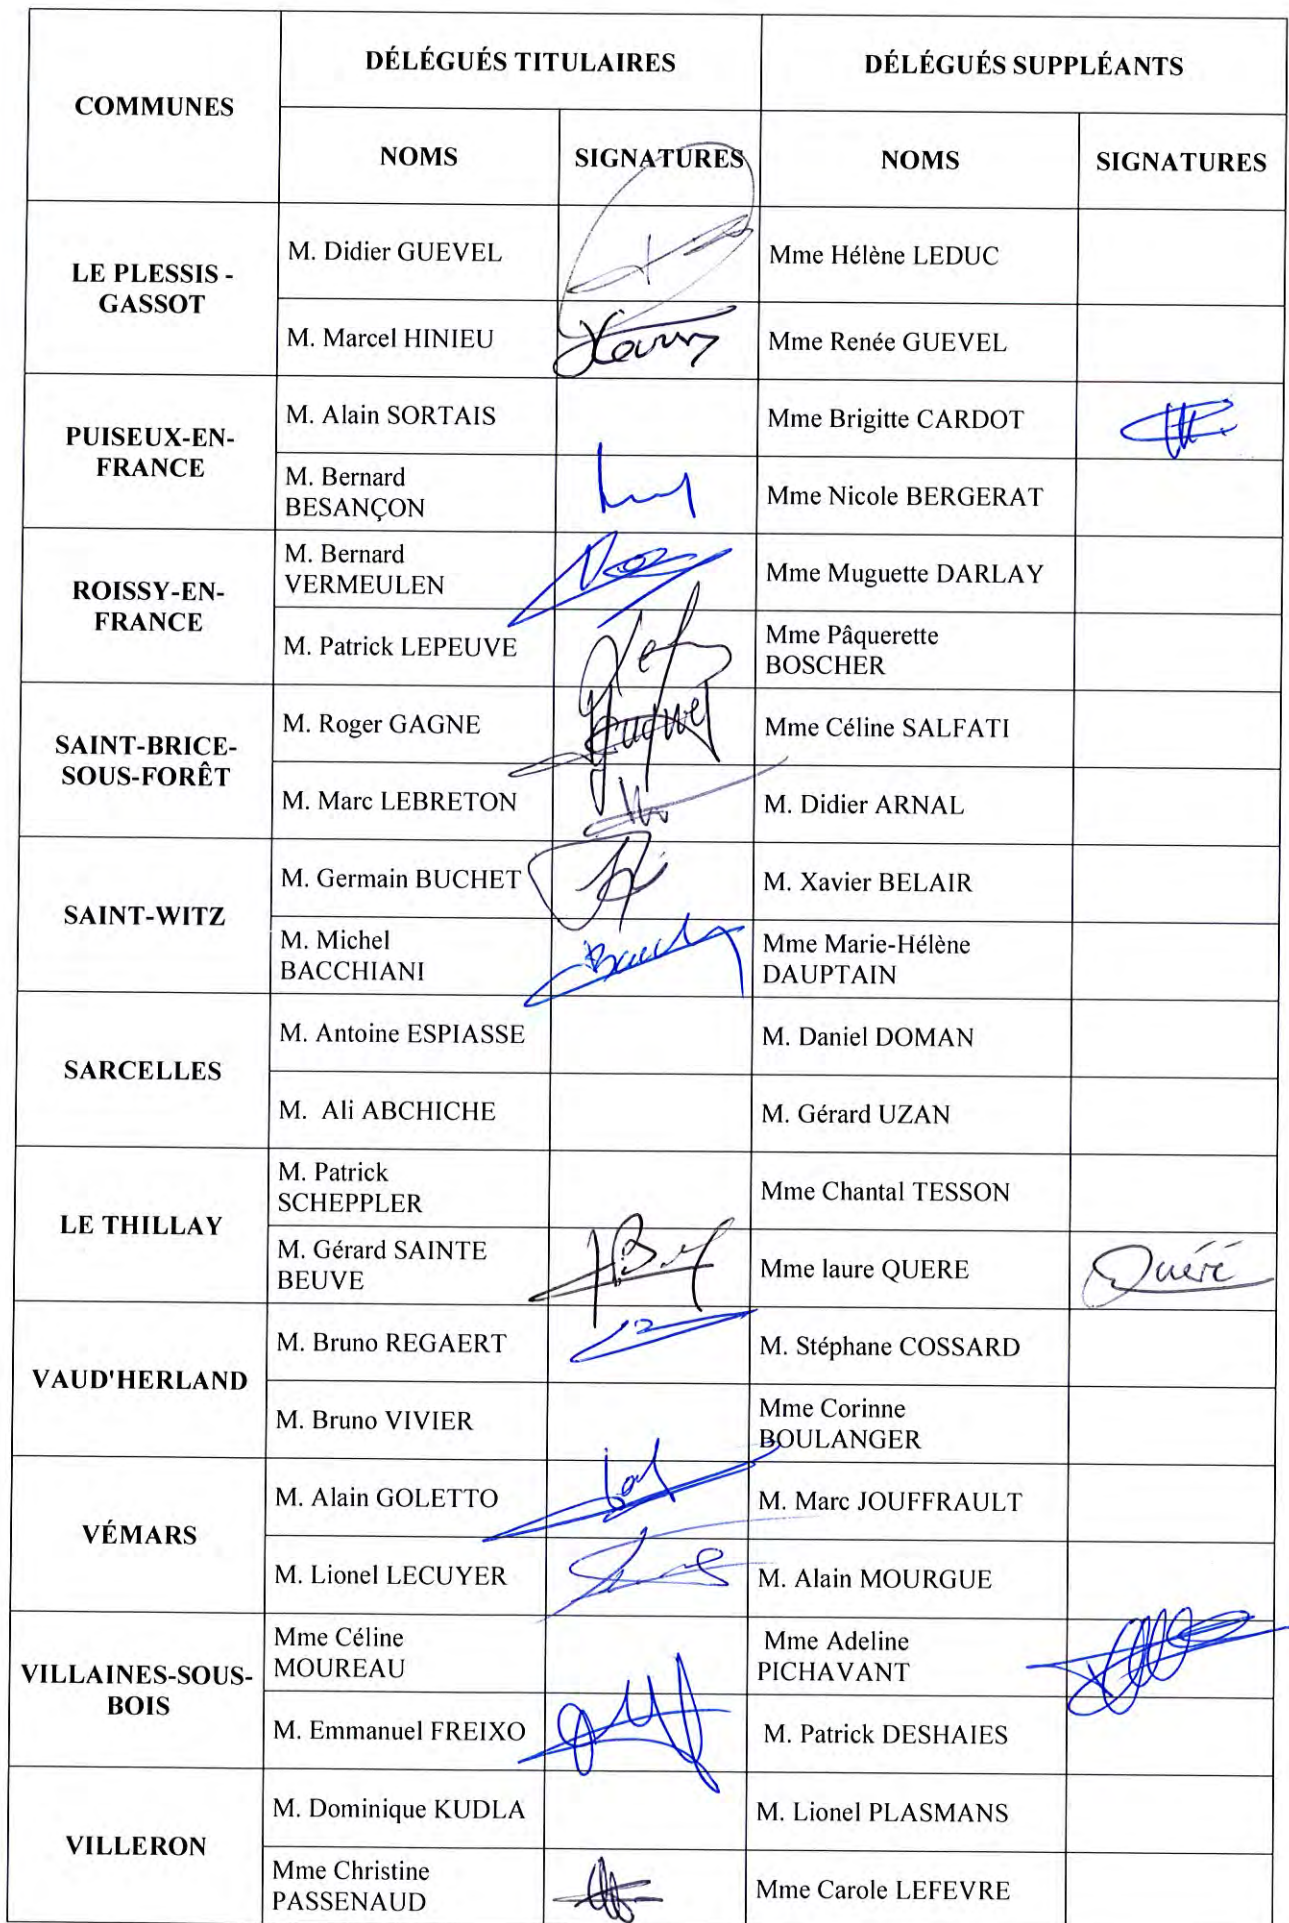 COMMUNES
DÉLÉGUÉS TITULAIRES
DÉLÉGUÉS SUPPLÉANTS
NOMS
SIGNATURES
NOMS
SIGNATURES
LE PLESSIS -
GASSOT
M. Didier GUEVEL
Mme Hélène LEDUC
M. Marcel HINIEU
Mme Renée GUEVEL
PUISEUX-EN-
FRANCE
M. Alain SORTAIS
Mme Brigitte CARDOT
M. Bernard
BESANÇON
Mme Nicole BERGERAT
ROISSY-EN-
FRANCE
M. Bernard
VERMEULEN
Mme Muguette DARLAY
M. Patrick LEPEUVE
Mme Pâquerette
BOSCHER
SAINT-BRICE-
SOUS-FORÊT
M. Roger GAGNE
Mme Céline SALFATI
M. Marc LEBRETON
M. Didier ARNAL
SAINT-WITZ
M. Germain BUCHET
M. Xavier BELAIR
M. Michel
BACCHIANI
Mme Marie-Hélène
DAUPTAIN
SARCELLES
M. Antoine ESPIASSE
M. Daniel DOMAN
M. Ali ABCHICHE
M. Gérard UZAN
LE THILLAY
M. Patrick
SCHEPPLER
Mme Chantal TESSON
M. Gérard SAINTE
BEUVE
Mme laure QUERE
Quéré
VAUD'HERLAND
M. Bruno REGAERT
M. Stéphane COSSARD
M. Bruno VIVIER
Mme Corinne
BOULANGER
VÉMARS
M. Alain GOLETTO
M. Marc JOUFFRAULT
M. Lionel LECUYER
M. Alain MOURGUE
VILLAINES-SOUS-
BOIS
Mme Céline
MOUREAU
Mme Adeline
PICHAVANT
M. Emmanuel FREIXO
M. Patrick DESHAIES
VILLERON
M. Dominique KUDLA
M. Lionel PLASMANS
Mme Christine
PASSENAUD
Mme Carole LEFEVRE